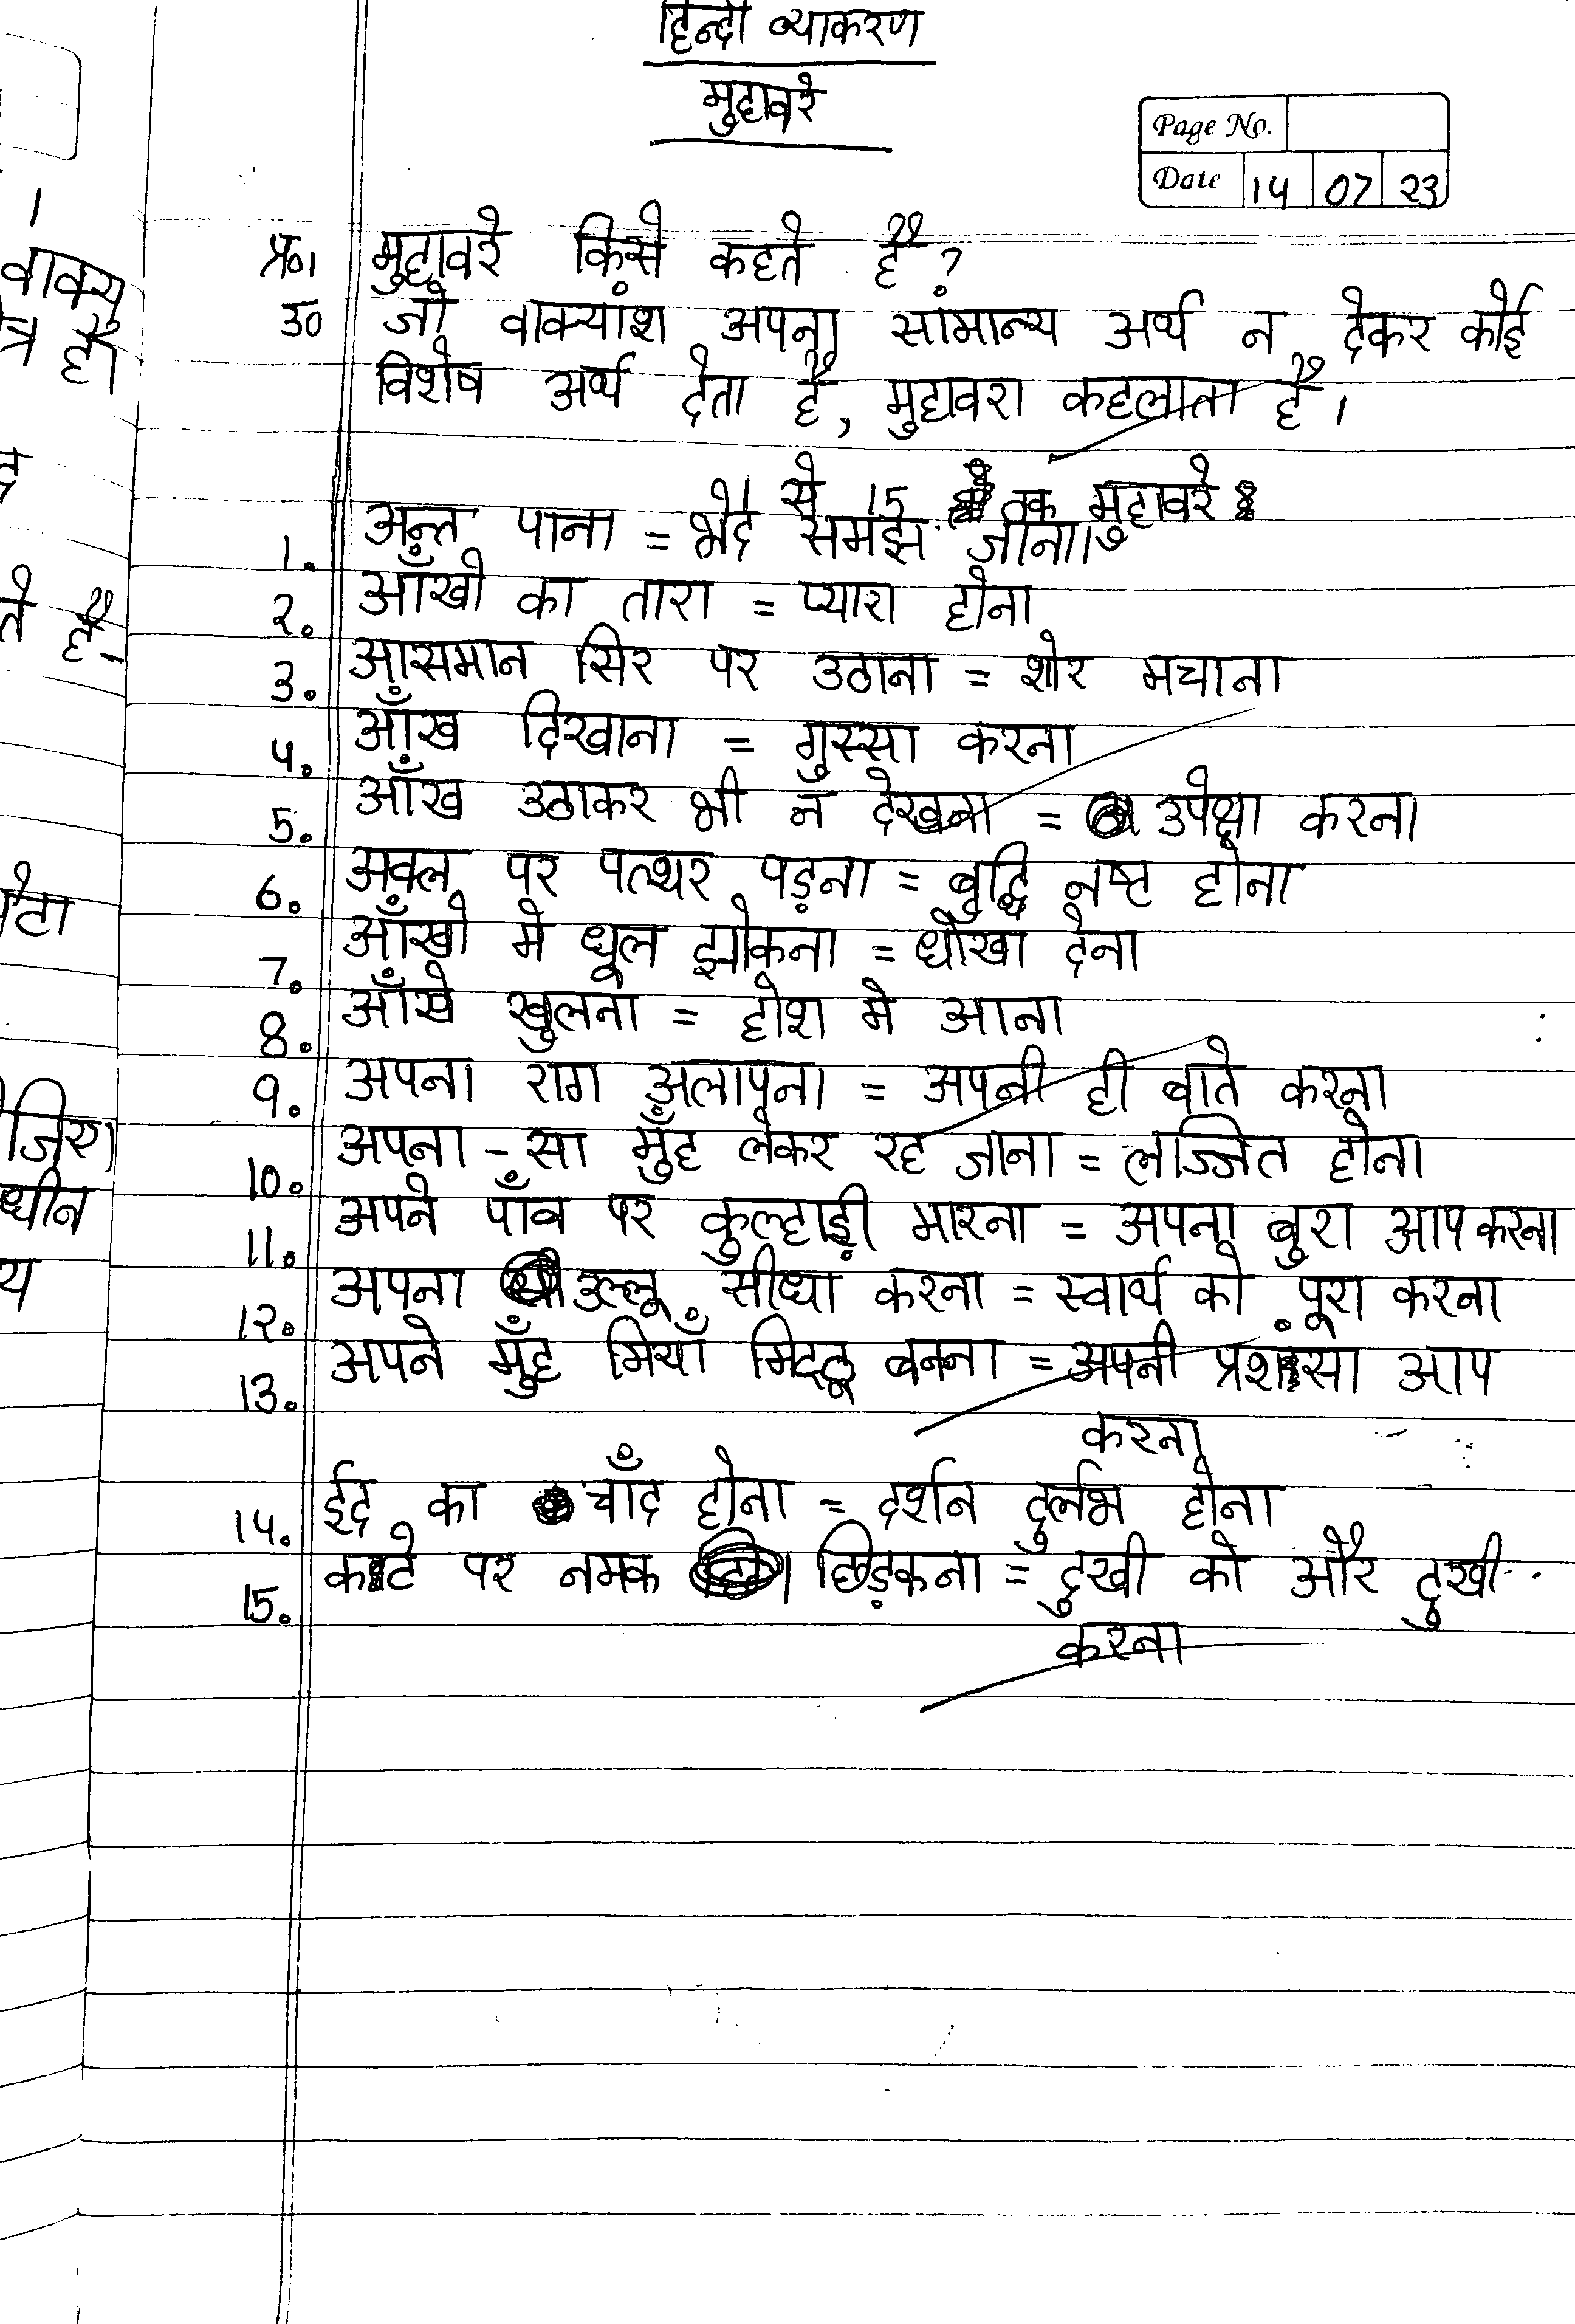 हिन्दी व्याकरण
मुहावरे
Page No.
Date 14 07 23
प्र०1 मुहावरे किसे कहते हैं?
उ० जो वाक्यांश अपना सामान्य अर्थ न देकर कोई
विशेष अर्थ देता है, मुहावरा कहलाता है।
1 से 15 तक मुहावरे
1. अन्त पाना = भेद समझ जाना।
2. आँखो का तारा = प्यारा होना
3. आसमान सिर पर उठाना = शोर मचाना
4. आँख दिखाना = गुस्सा करना
5. आँख उठाकर भी न देखना = उपेक्षा करना
6. अक्ल पर पत्थर पड़ना = बुद्धि नष्ट होना
7. आँखो मे धूल झोकना = धोखा देना
8. आँखे खुलना = होश मे आना
9. अपना राग अलापना = अपनी ही बाते करना
10. अपना - सा मुँह लेकर रह जाना = लज्जित होना
11. अपने पाँव पर कुल्हाड़ी मारना = अपना बुरा आप करना
12. अपना उल्लू सीधा करना = स्वार्थ को पूरा करना
13. अपने मुँह मियाँ मिट्ठू बनना = अपनी प्रशंसा आप
करना
14. ईद का चाँद होना = दर्शन दुर्लभ होना
15. काटे पर नमक छिड़कना = दुखी को और दुखी
करना
वाक्य
है।
ते हैं-
य